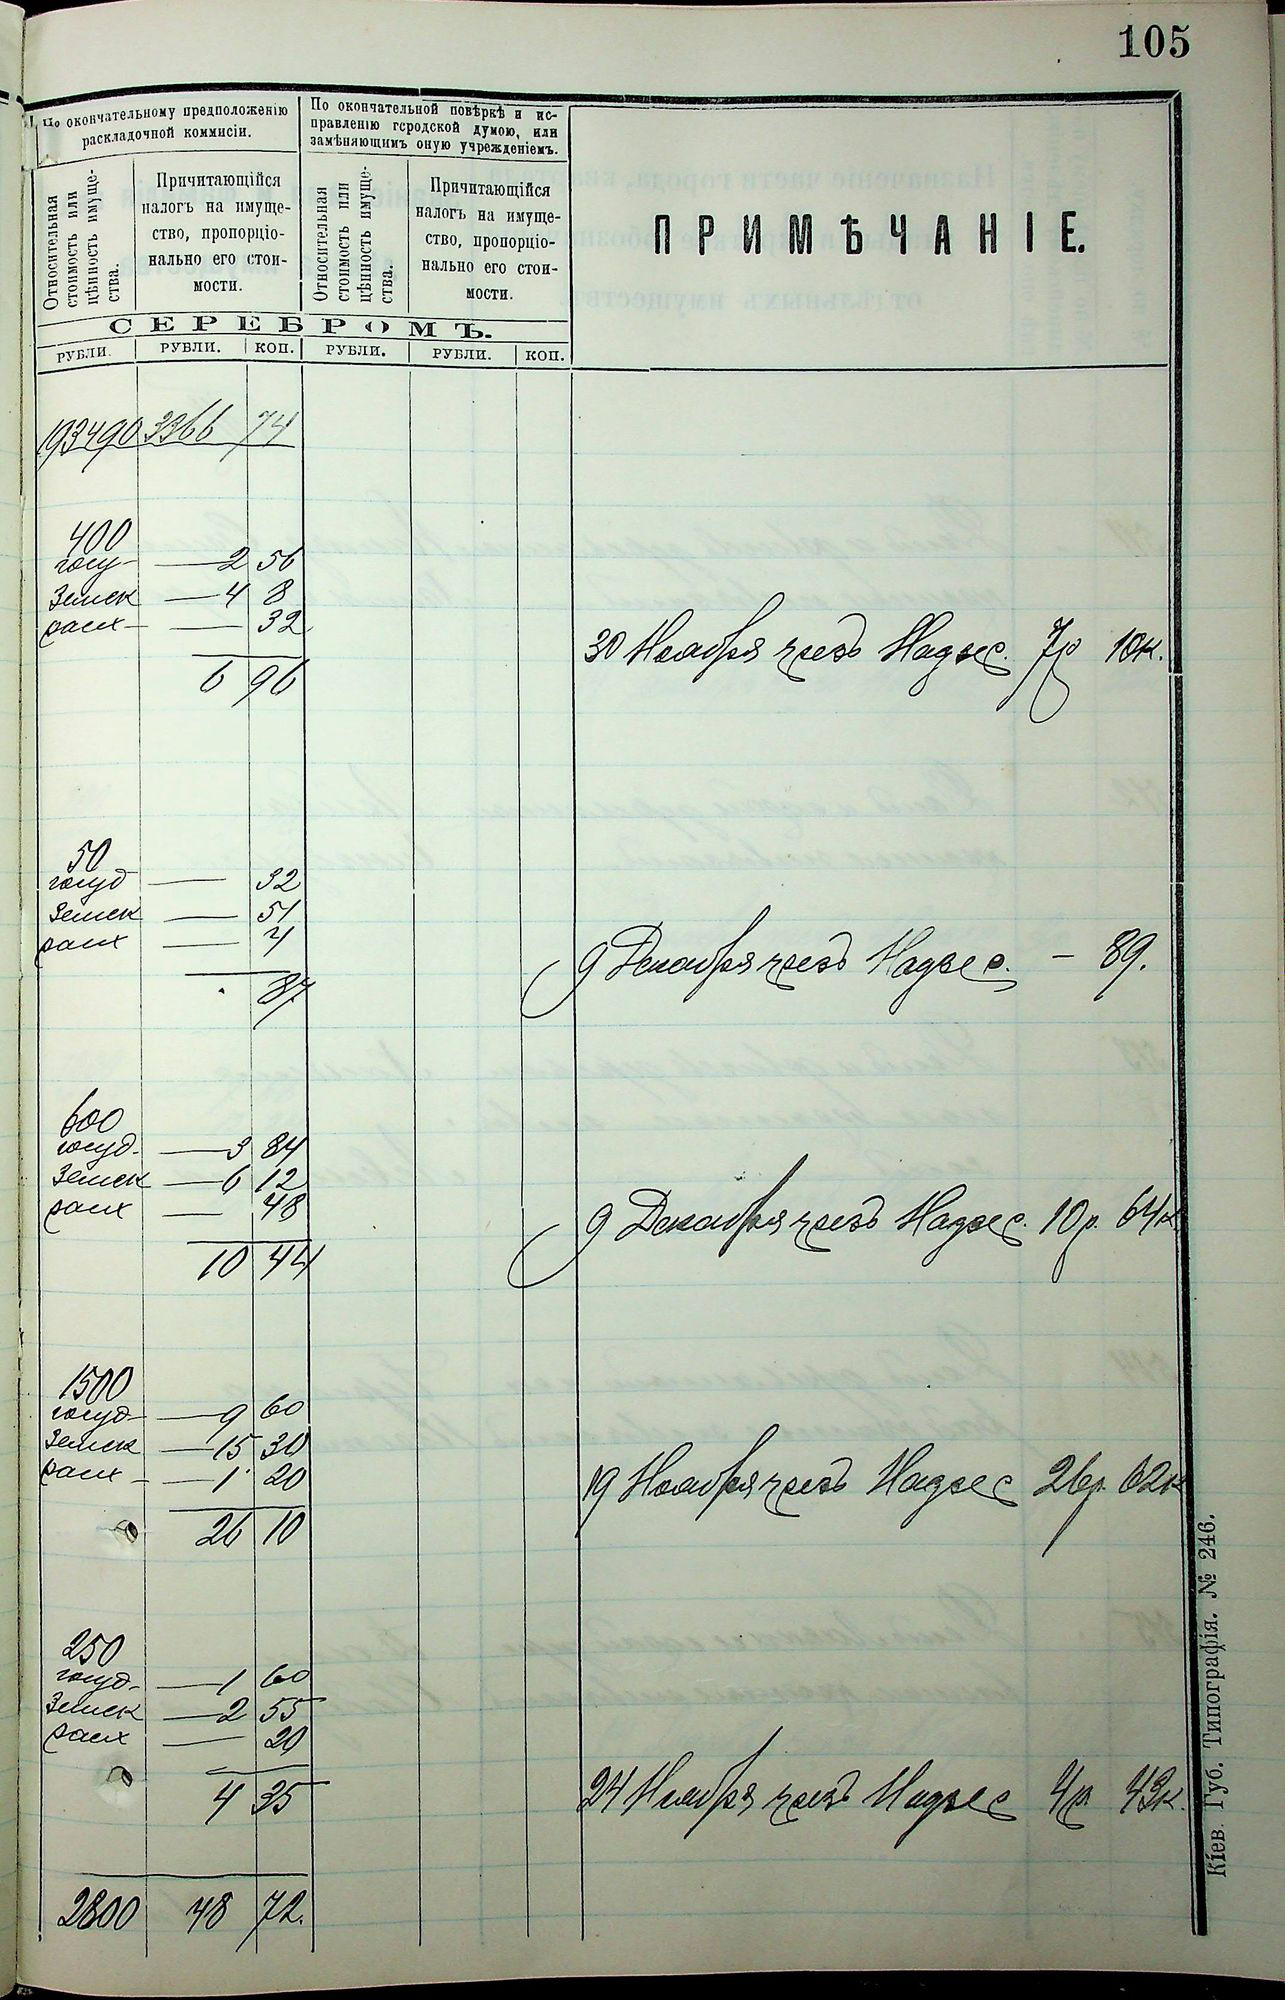 105
По окончательному предположенію
раскладочной коммисіи.
По окончательной повѣркѣ и ис-
правленію городской думою, или
замѣняющимъ оную учрежденіемъ.
Относительная
стоимость или
цѣнность имуще-
ства.
Причитающійся
налогъ на имуще-
ство, пропорціо-
нально его стои-
мости.
Относительная
стоимость или
цѣнность имуще-
ства.
Причитающійся
налогъ на имуще-
ство, пропорціо-
нально его стои-
мости.
ПРИМѢЧАНІЕ.
СЕРЕБРОМЪ.
РУБЛИ. РУБЛИ. КОП. РУБЛИ. РУБЛИ. КОП.
193490 3366 74
400
госу — 2 56
Земск — 4 8
расх — 32
6 96
30 Ноября чрезъ Надзес. 7р 10к.
50
госуд — 32
Земск — 51
расх — 4
87
9 Декабря чрезъ Надзес. — 89.
600
госуд — 3 84
Земск — 6 12
расх — 48
10 44
9 Декабря чрезъ Надзес. 10р. 64к
1500
госуд — 9 60
Земск — 15 30
расх — 1 20
26 10
19 Ноября чрезъ Надзес 26р. 62к
250
госуд — 1 60
Земск — 2 55
расх — 20
4 35
24 Ноября чрезъ Надзес 4р 43к.
2800 48 72.
Кіев. Губ. Типографія. № 246.